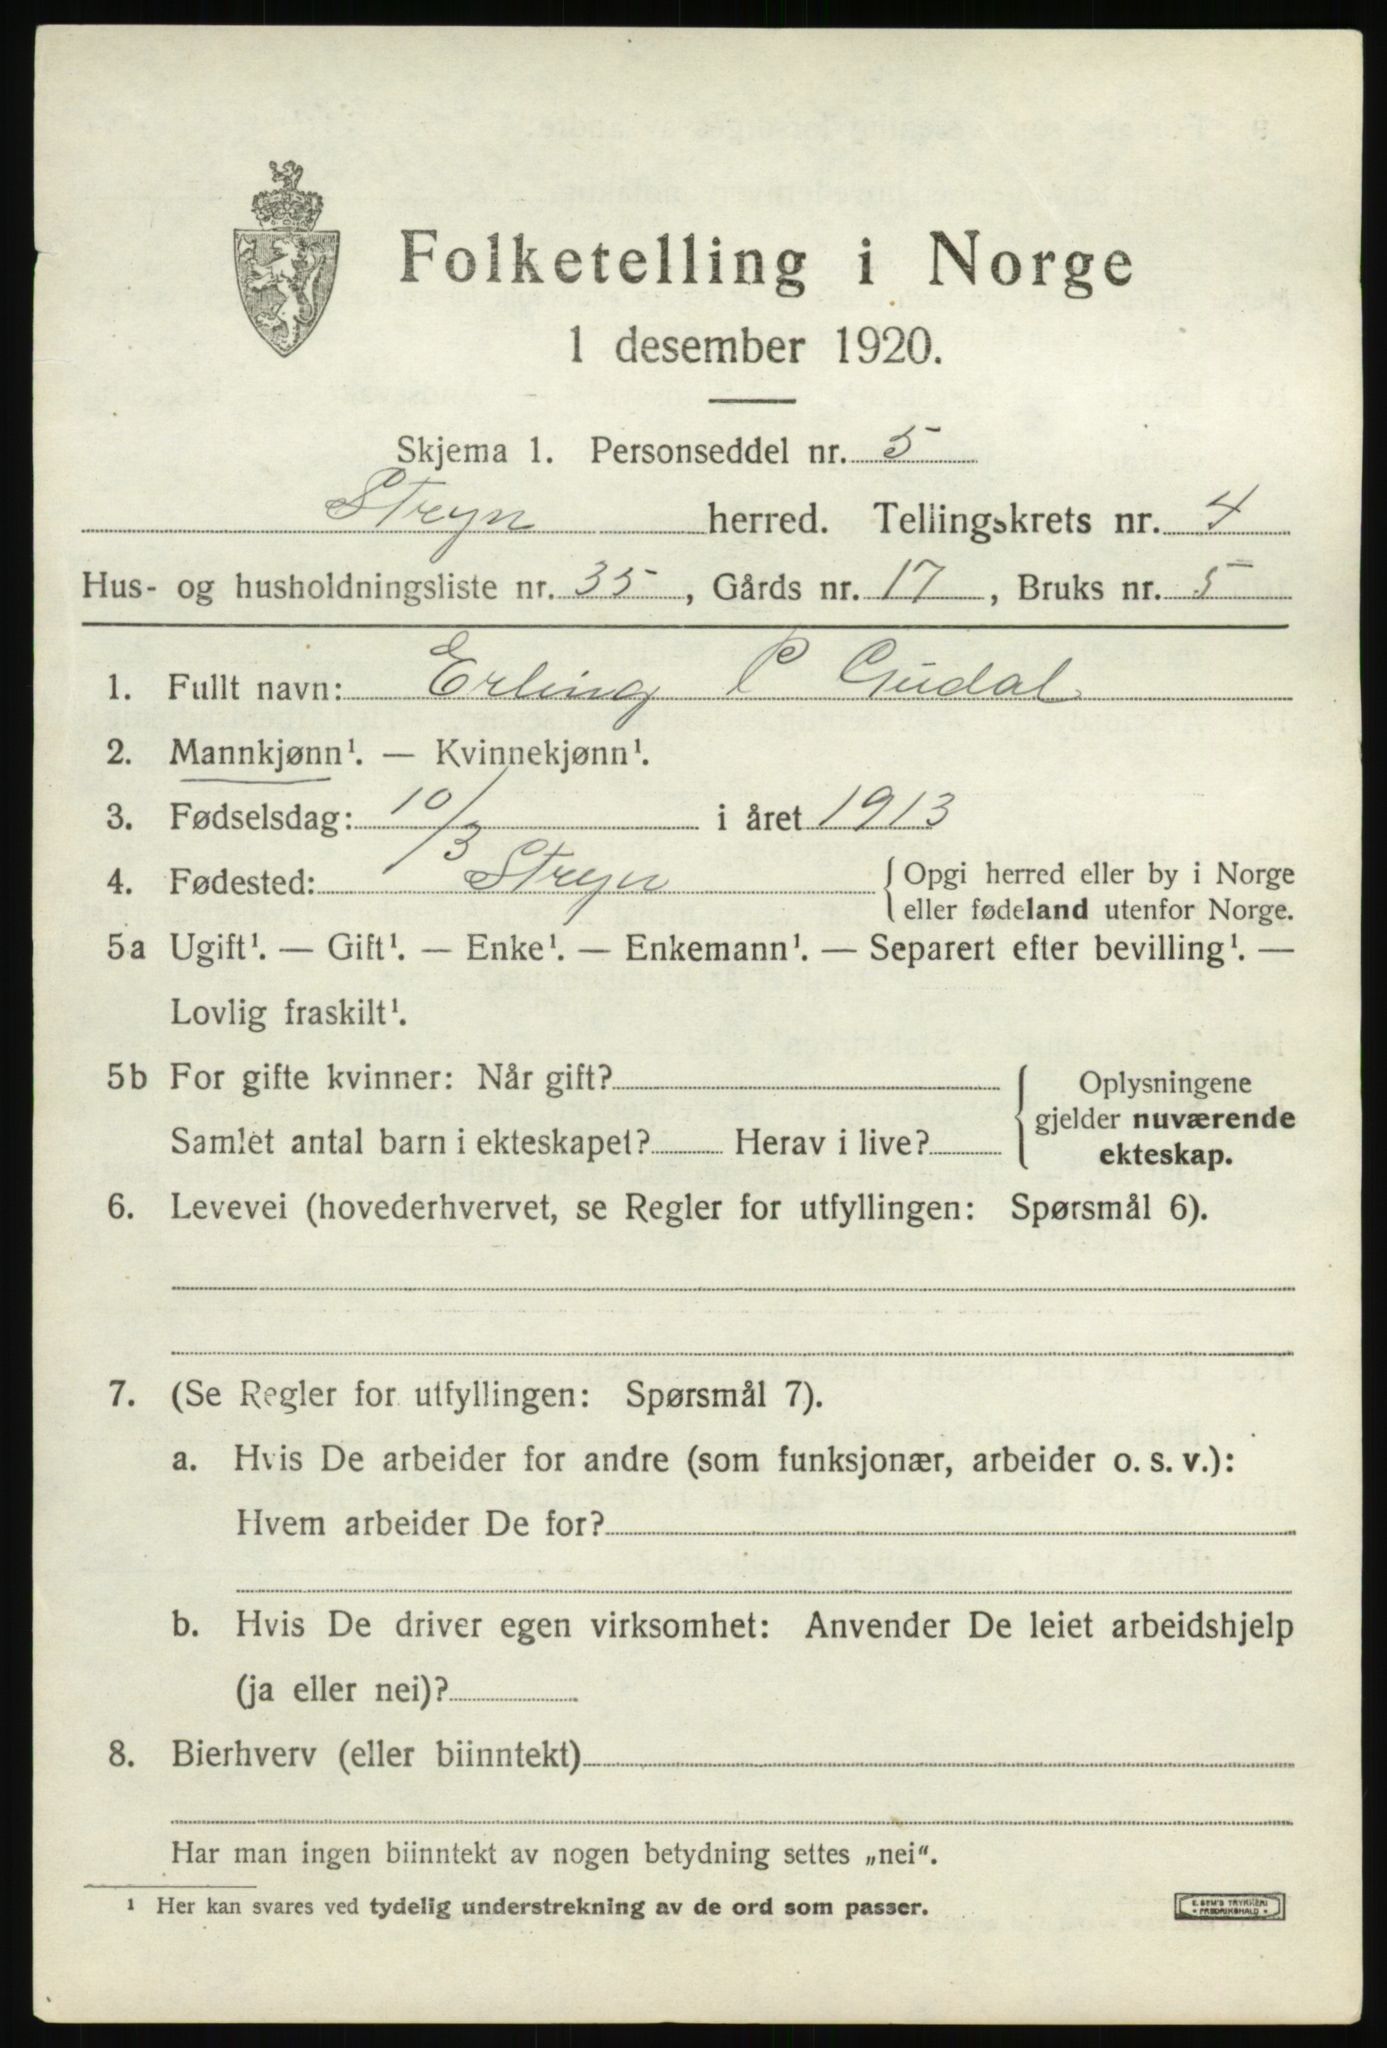 Folketelling i Norge
1 desember 1920.
Skjema 1. Personseddel nr. 5
Stryn herred. Tellingskrets nr. 4
Hus- og husholdningsliste nr. 35, Gårds nr. 17, Bruks nr. 5
1. Fullt navn: Erling P Gudal
2. Mannkjønn¹. — Kvinnekjønn¹.
3. Fødselsdag: 10/3 i året 1913
4. Fødested: Stryn { Opgi herred eller by i Norge
eller fødeland utenfor Norge.
5a Ugift¹. — Gift¹. — Enke¹. — Enkemann¹. — Separert efter bevilling¹. —
Lovlig fraskilt¹.
5b For gifte kvinner: Når gift? { Oplysningene
gjelder nuværende
Samlet antal barn i ekteskapet? Herav i live? ekteskap.
6. Levevei (hovederhvervet, se Regler for utfyllingen: Spørsmål 6).
7. (Se Regler for utfyllingen: Spørsmål 7).
a. Hvis De arbeider for andre (som funksjonær, arbeider o. s. v.):
Hvem arbeider De for?
b. Hvis De driver egen virksomhet: Anvender De leiet arbeidshjelp
(ja eller nei)?
8. Bierhverv (eller biinntekt)
Har man ingen biinntekt av nogen betydning settes „nei".
¹ Her kan svares ved tydelig understrekning av de ord som passer.
E. SEM'S TRYKKERI
FREDRIKSHALD